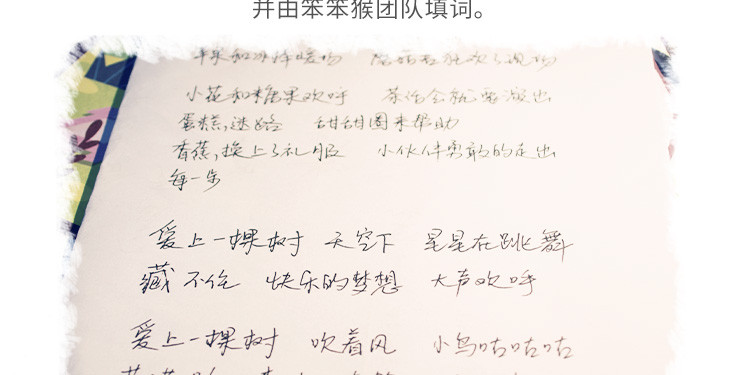 并由笨笨猴团队填词。
苹果和冰棒暖场
小花和糖果欢呼 茶话会就要演出
蛋糕迷路 甜甜圈来帮助
香蕉换上了礼服 小伙伴勇敢的走出
每一步
爱上一棵树 天空下 星星在跳舞
藏不住 快乐的梦想 大声欢呼
爱上一棵树 吹着风 小鸟咕咕咕咕